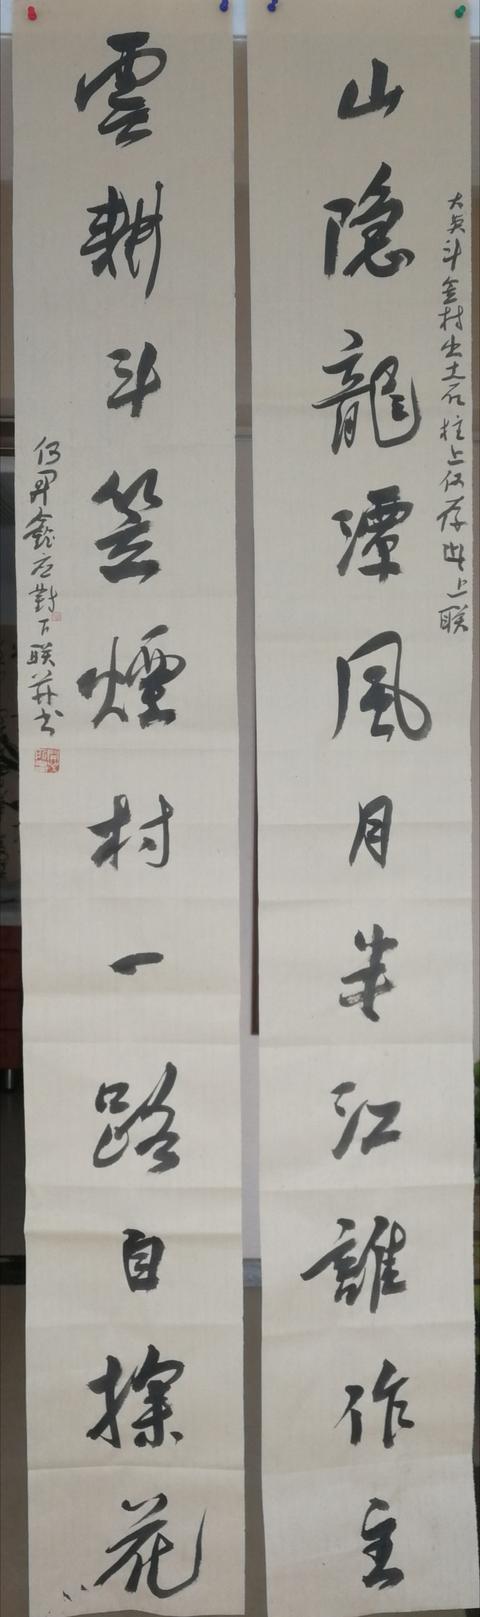 大斗金村出土石柱上仅存此上联
山隐龍潭風月半江誰作主
雲耕斗笠煙村一路自探花
昇鑫应對下联并书